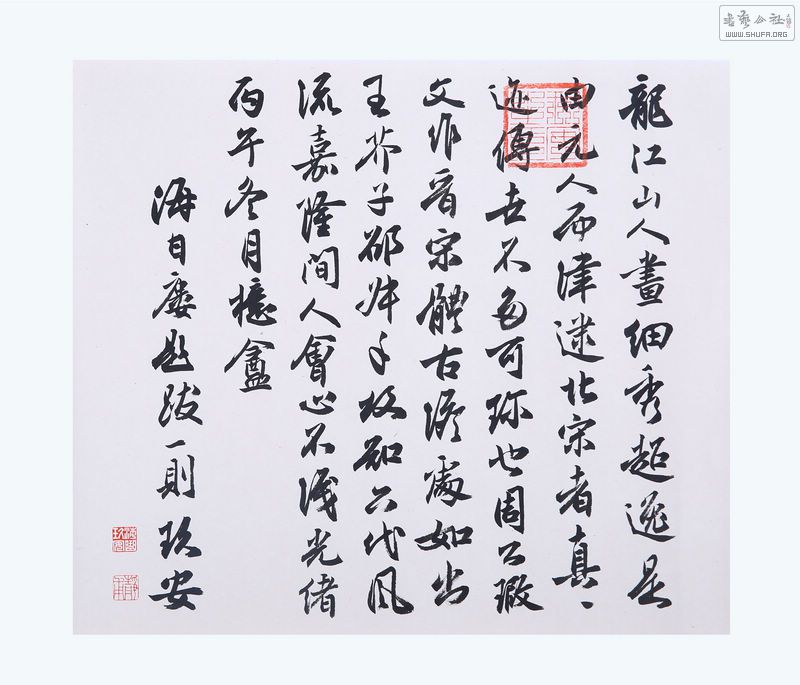 龍江山人畫細秀超逸是
由元人而津逮北宋者真、
迹傳世不多可珍也周公瑕
文作晉宋體古澹處如出
王芥子手故知六代風
流嘉隆間人會心不淺光緒
丙午冬月檍盦
海日廔題跋一則玖安
書藝公社
WWW.SHUFA.ORG